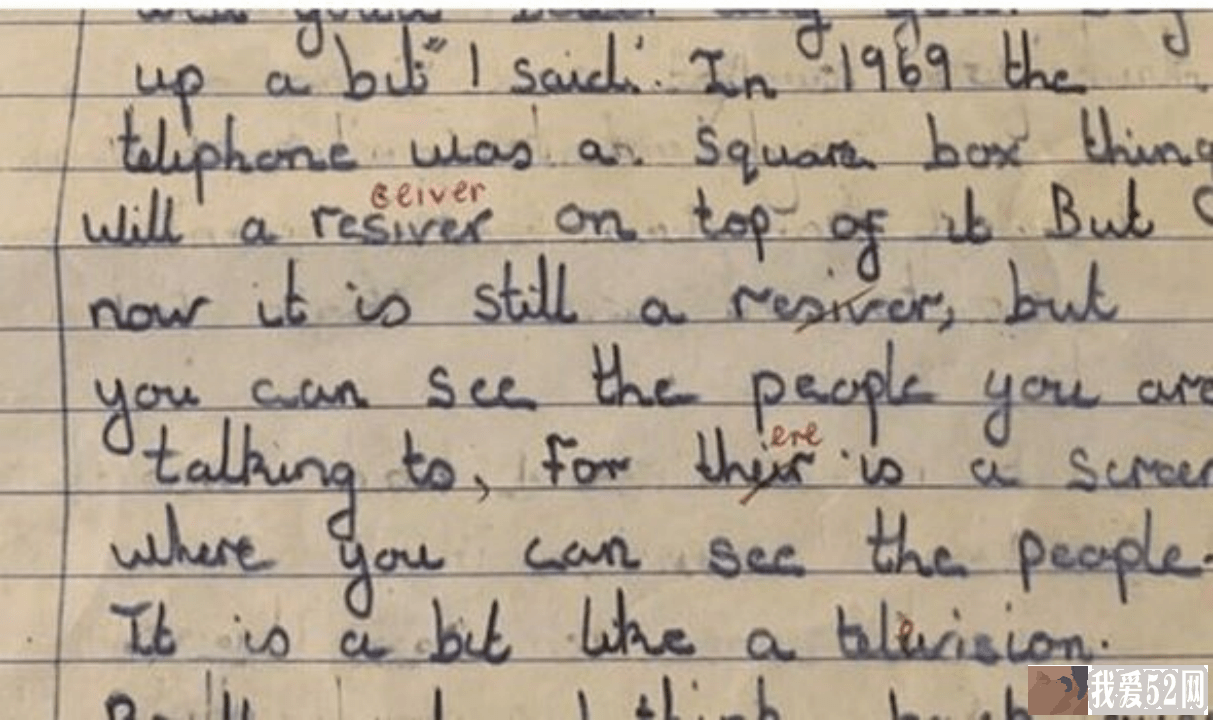 up a bit" I said. In 1969 the
teliphone was a square box thing
ceiver
will a resiver on top of it But
now it is still a resiver, but
you can see the people you are
ere
talking to, For their is a screen
where you can see the people.
It is a bit like a television.
I think
我爱52网